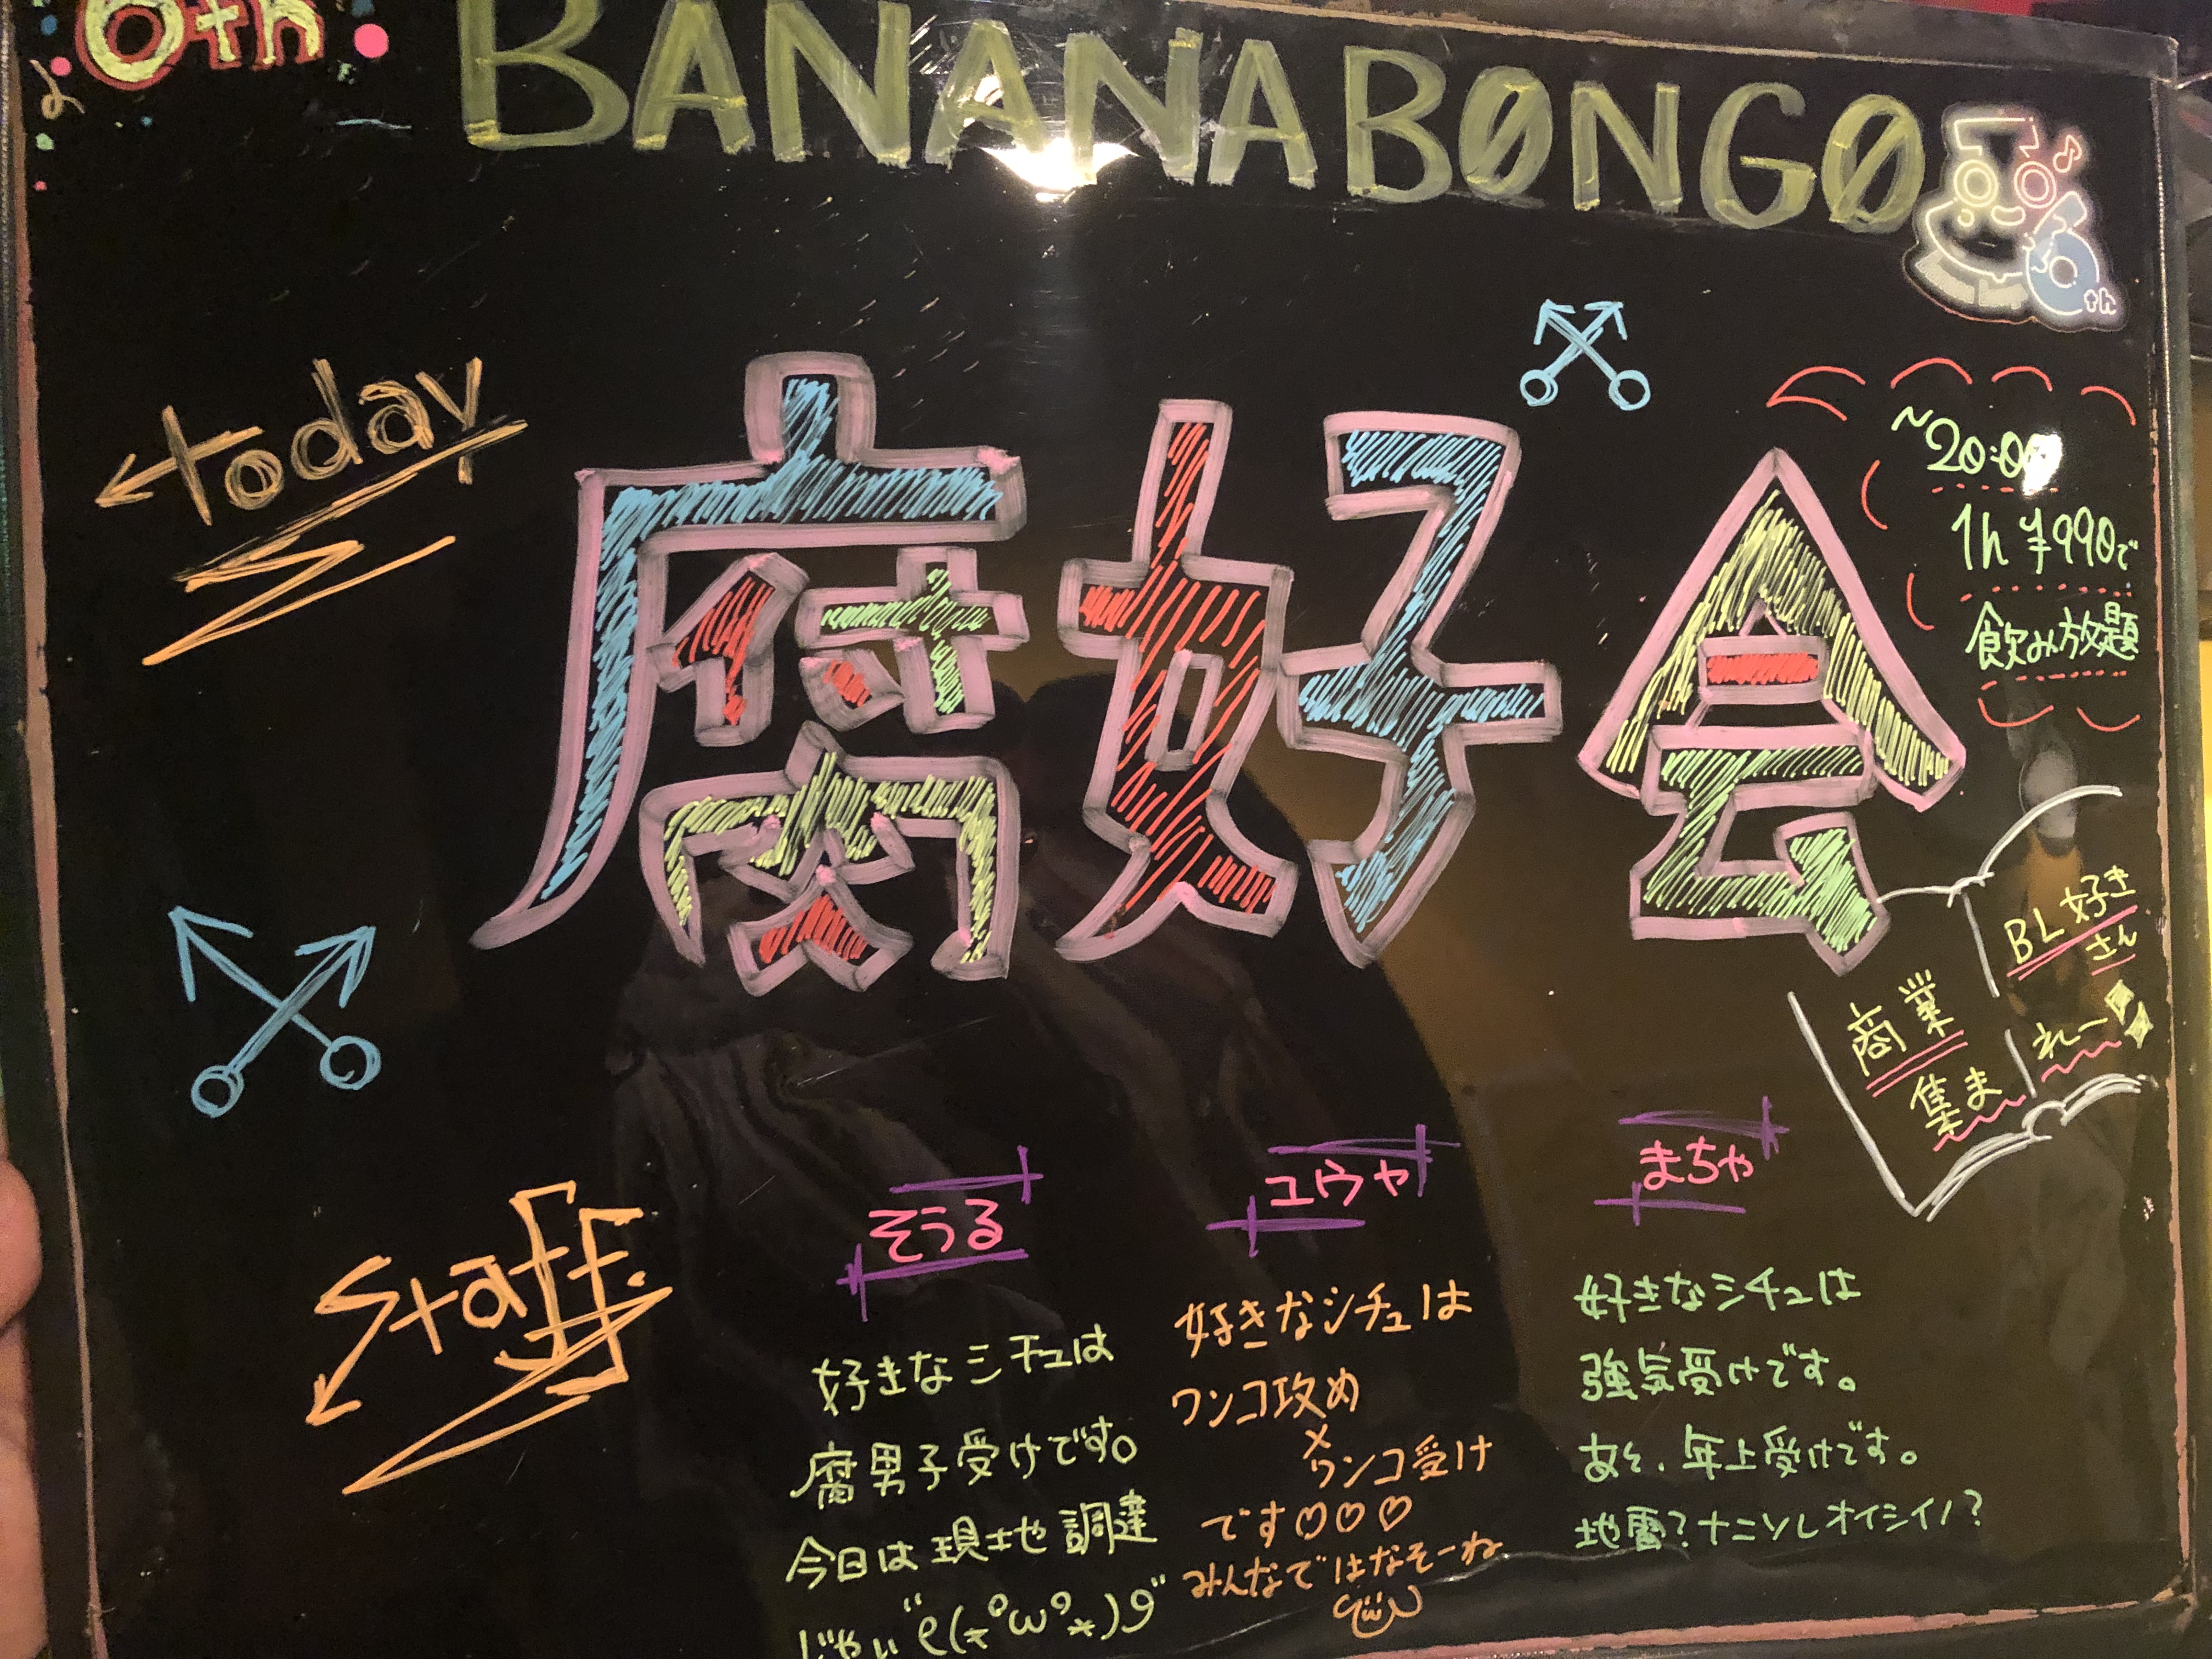 6th
BANANABONGO
6th
today
腐好会
~20:00
1h ¥990で
飲み放題
BL好き
さん
商業
集ま
れー
Staff
そうる
好きなシチュは
腐男子受けです。
今日は現地調達
じゃい
ユウヤ
好きなシチュは
ワンコ攻め
×
ワンコ受け
です♡♡♡
みんなではなそーね
まちゃ
好きなシチュは
強気受けです。
あと、年上受けです。
地雷?ナニソレオイシイノ?